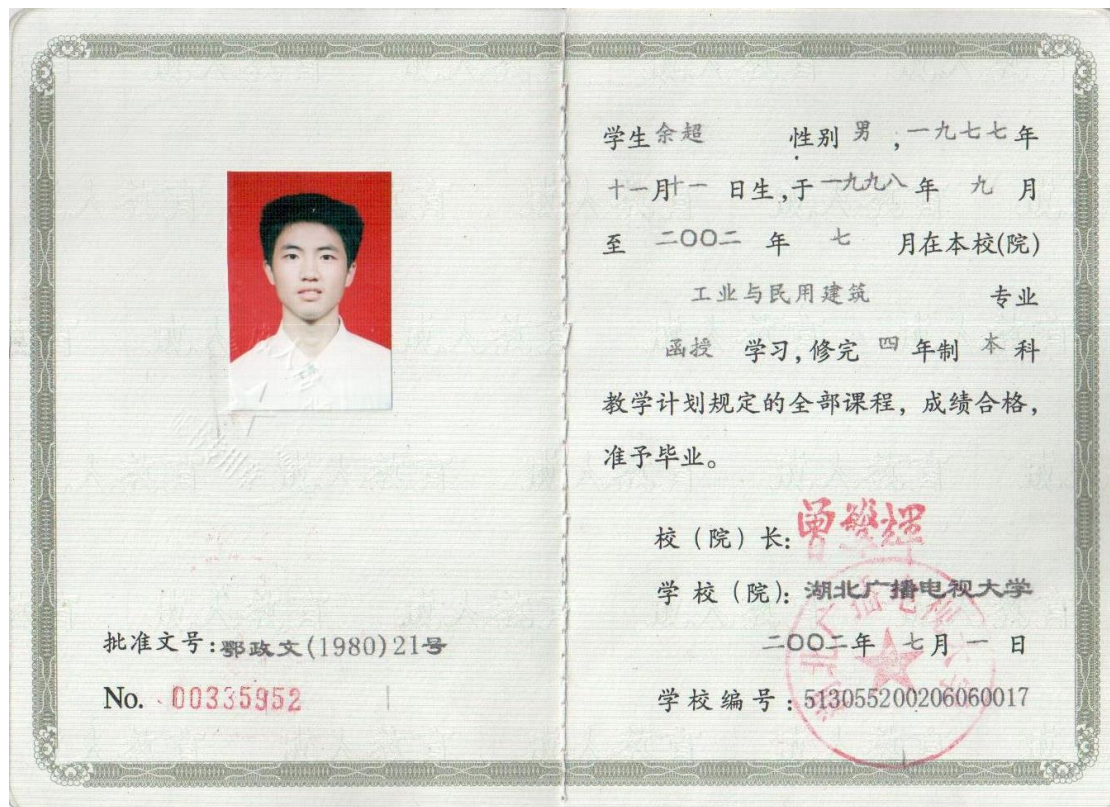 批准文号:鄂政文(1980)21号
No. 00335952
学生 余超 性别 男 , 一九七七 年
十一 月 十一 日生,于 一九九八 年 九 月
至 二〇〇二 年 七 月在本校(院)
工业与民用建筑 专业
函授 学习,修完 四 年制 本 科
教学计划规定的全部课程，成绩合格，
准予毕业。
校（院）长:
学校（院）: 湖北广播电视大学
二〇〇二年 七月 一 日
学校编号:513055200206060017
湖北广播电视大学
成人教育